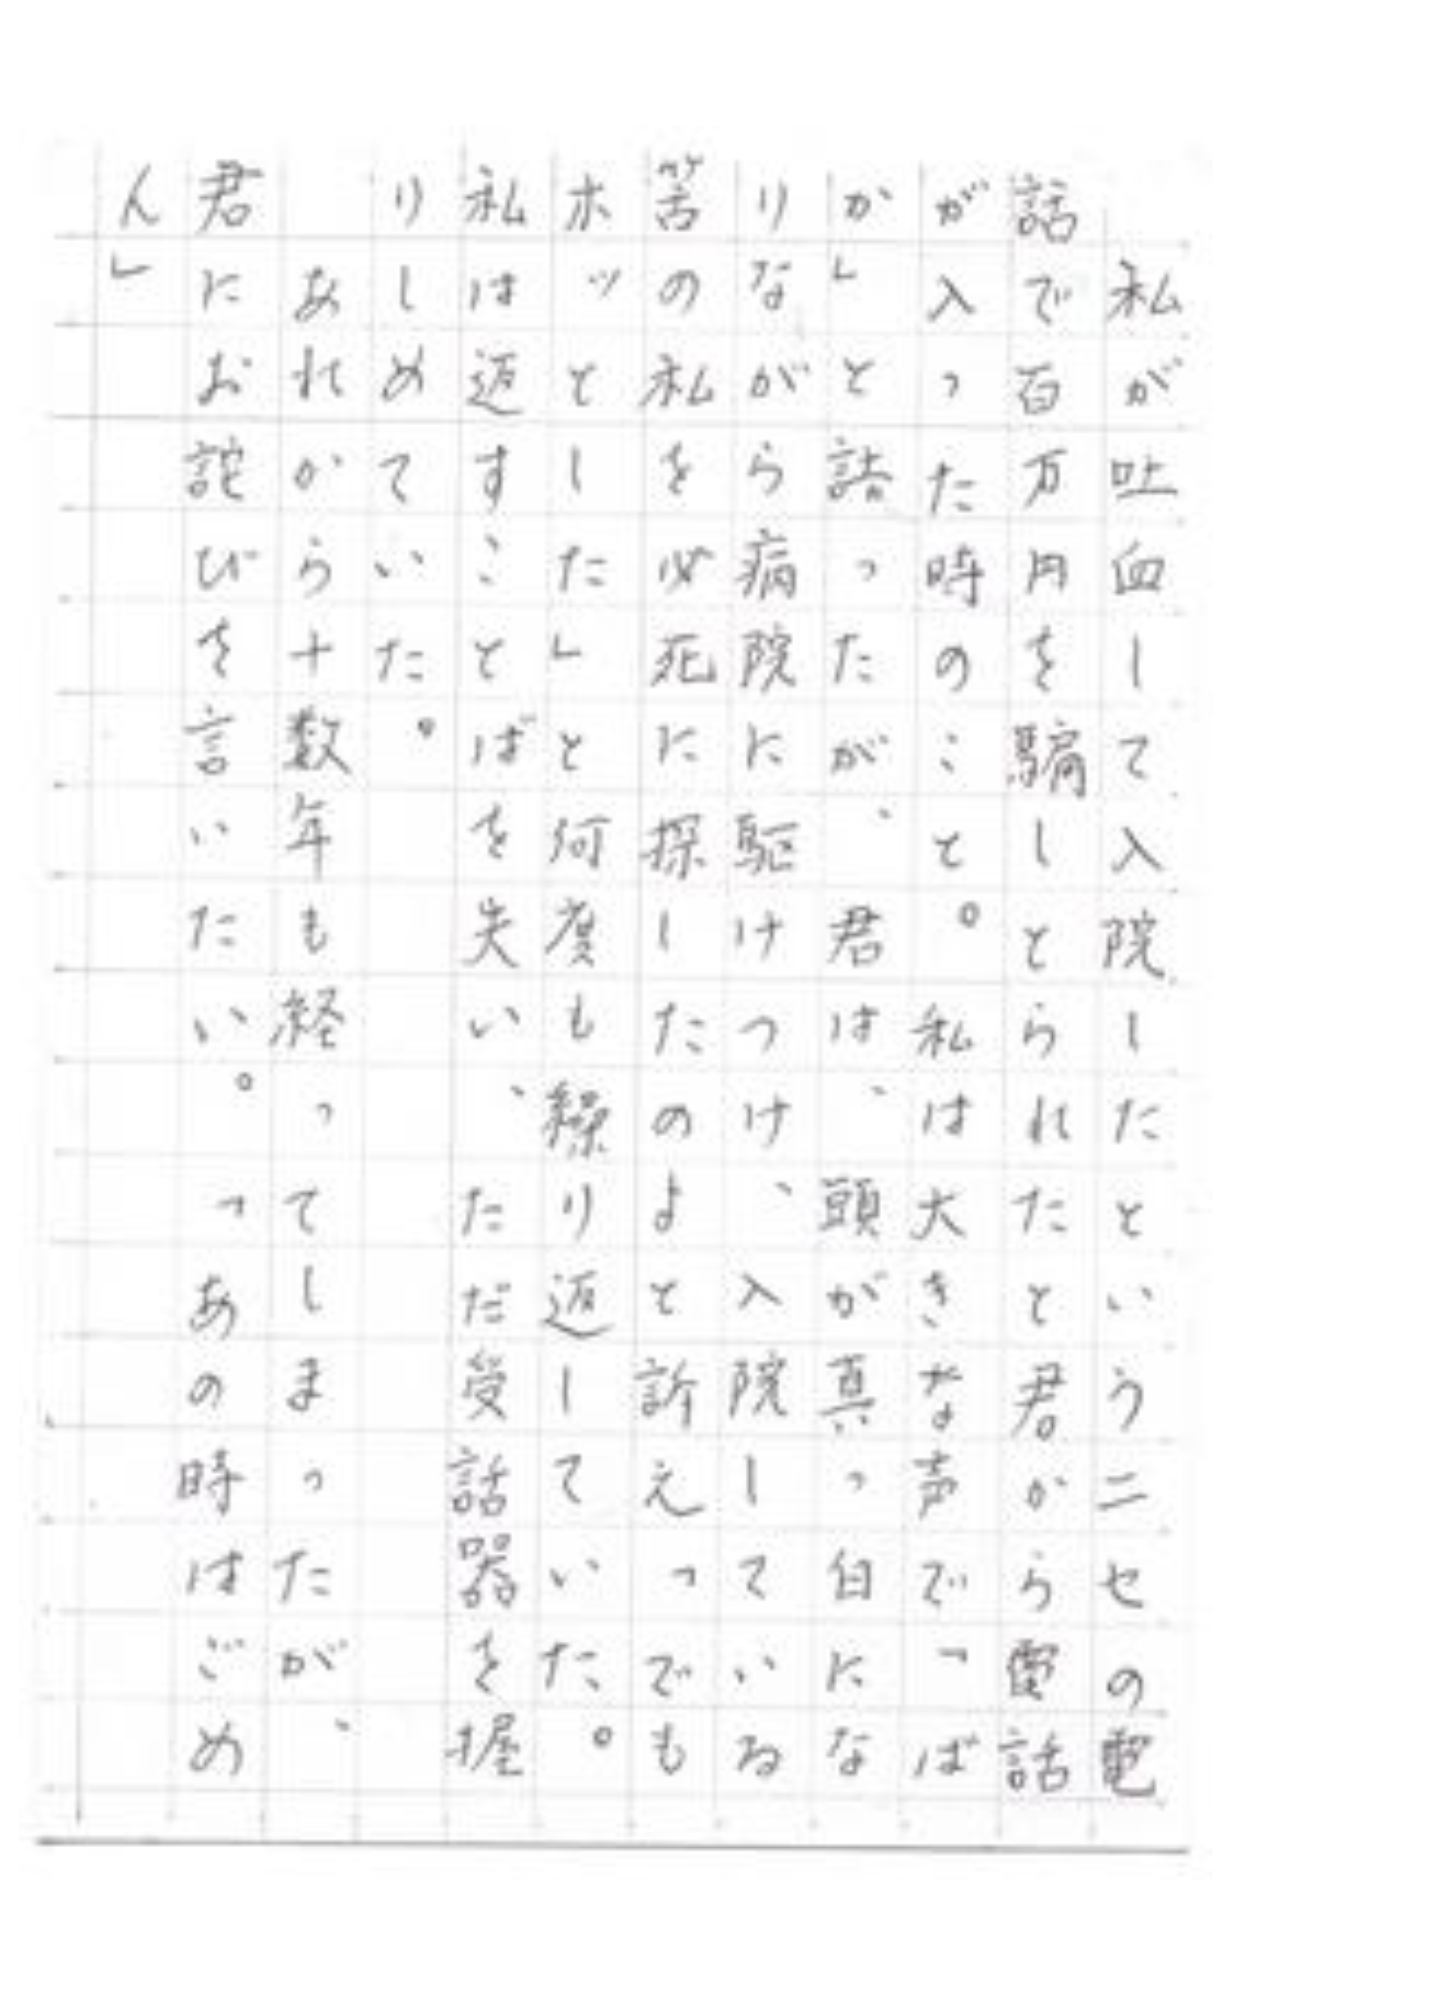 私が吐血して入院したというニセの電
話で百万円を騙しとられたと君から電話
が入った時のこと。私は大きな声で「ば
か」と詰ったが、君は、頭が真っ白にな
りながら病院に駆けつけ、入院している
筈の私を必死に探したのよと訴えつでも
ホッとした」と何度も繰り返していた。
私は返すことばを失い、ただ受話器を握
りしめていた。
あれから十数年も経ってしまったが、
君にお詫びを言いたい。「あの時はごめ
ん」